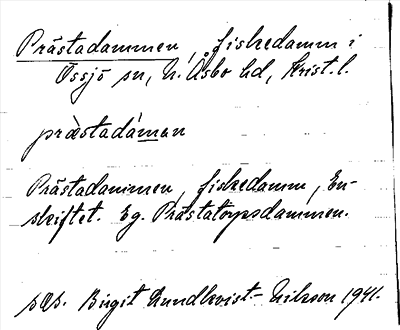 Prästadammen, fiskedamm i
Össjö sn, N. Åsbo hd, Krist. l.
prästadáman
Prästadammen, fiskedamm, En-
skiftet. Eg. Prästatorpsdammen.
Birgit Lundkvist-Nilsson 1941.